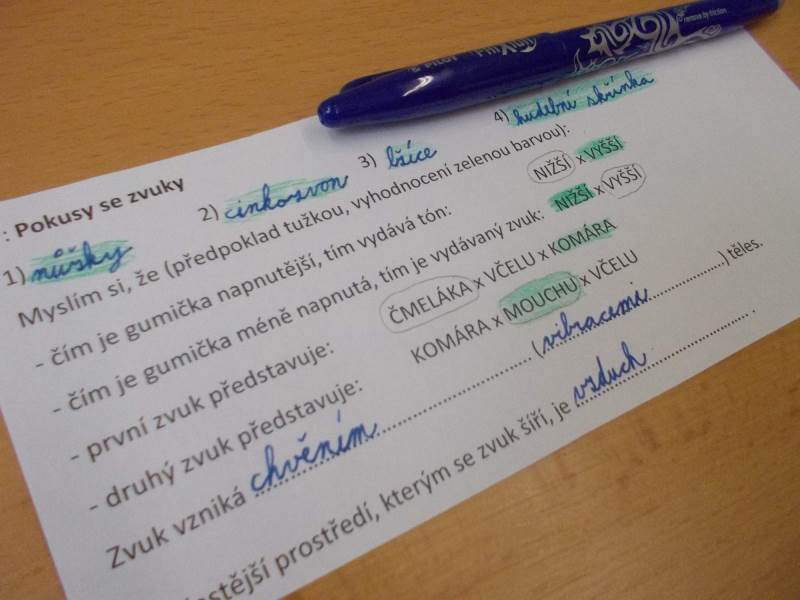 PILOT FriXion
remove by friction
: Pokusy se zvuky
1) nůžky 2) cinkozvon 3) lžíce 4) hudební skřínka
Myslím si, že (předpoklad tužkou, vyhodnocení zelenou barvou):
- čím je gumička napnutější, tím vydává tón: NIŽŠÍ x VYŠŠÍ
- čím je gumička méně napnutá, tím je vydávaný zvuk: NIŽŠÍ x VYŠŠÍ
- první zvuk představuje: ČMELÁKA x VČELU x KOMÁRA
- druhý zvuk představuje: KOMÁRA x MOUCHU x VČELU
Zvuk vzniká chvěním (vibracemi) těles.
prostředí, kterým se zvuk šíří, je vzduch.